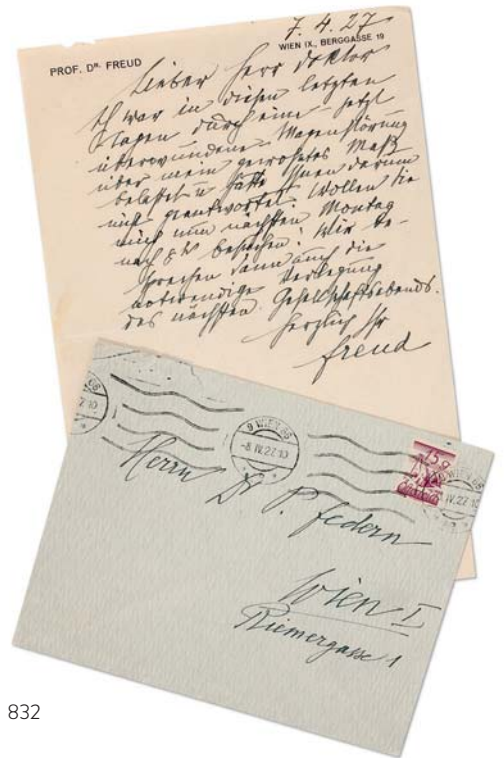 7. 4. 27
PROF. DR. FREUD
WIEN IX., BERGGASSE 19
Lieber Herr Doktor
Ich war in diesen letzten
Tagen durch eine – jetzt
überwundene – Magenstörung
über mein gewohntes Maß
belastet u hatte Ihnen darum
nicht geantwortet. Wollen Sie
mich nun nächsten Montag
nach 8h besuchen? Wir be-
sprechen dann auch die
notwendige Verlegung
des nächsten Gesellschaftsabends.
Herzlich Ihr
Freud
9 WIEN 66
-8. IV. 27. 10
15 g
IV. 27. 10
Herrn Dr P. Federn
Wien I
Riemergasse 1
832